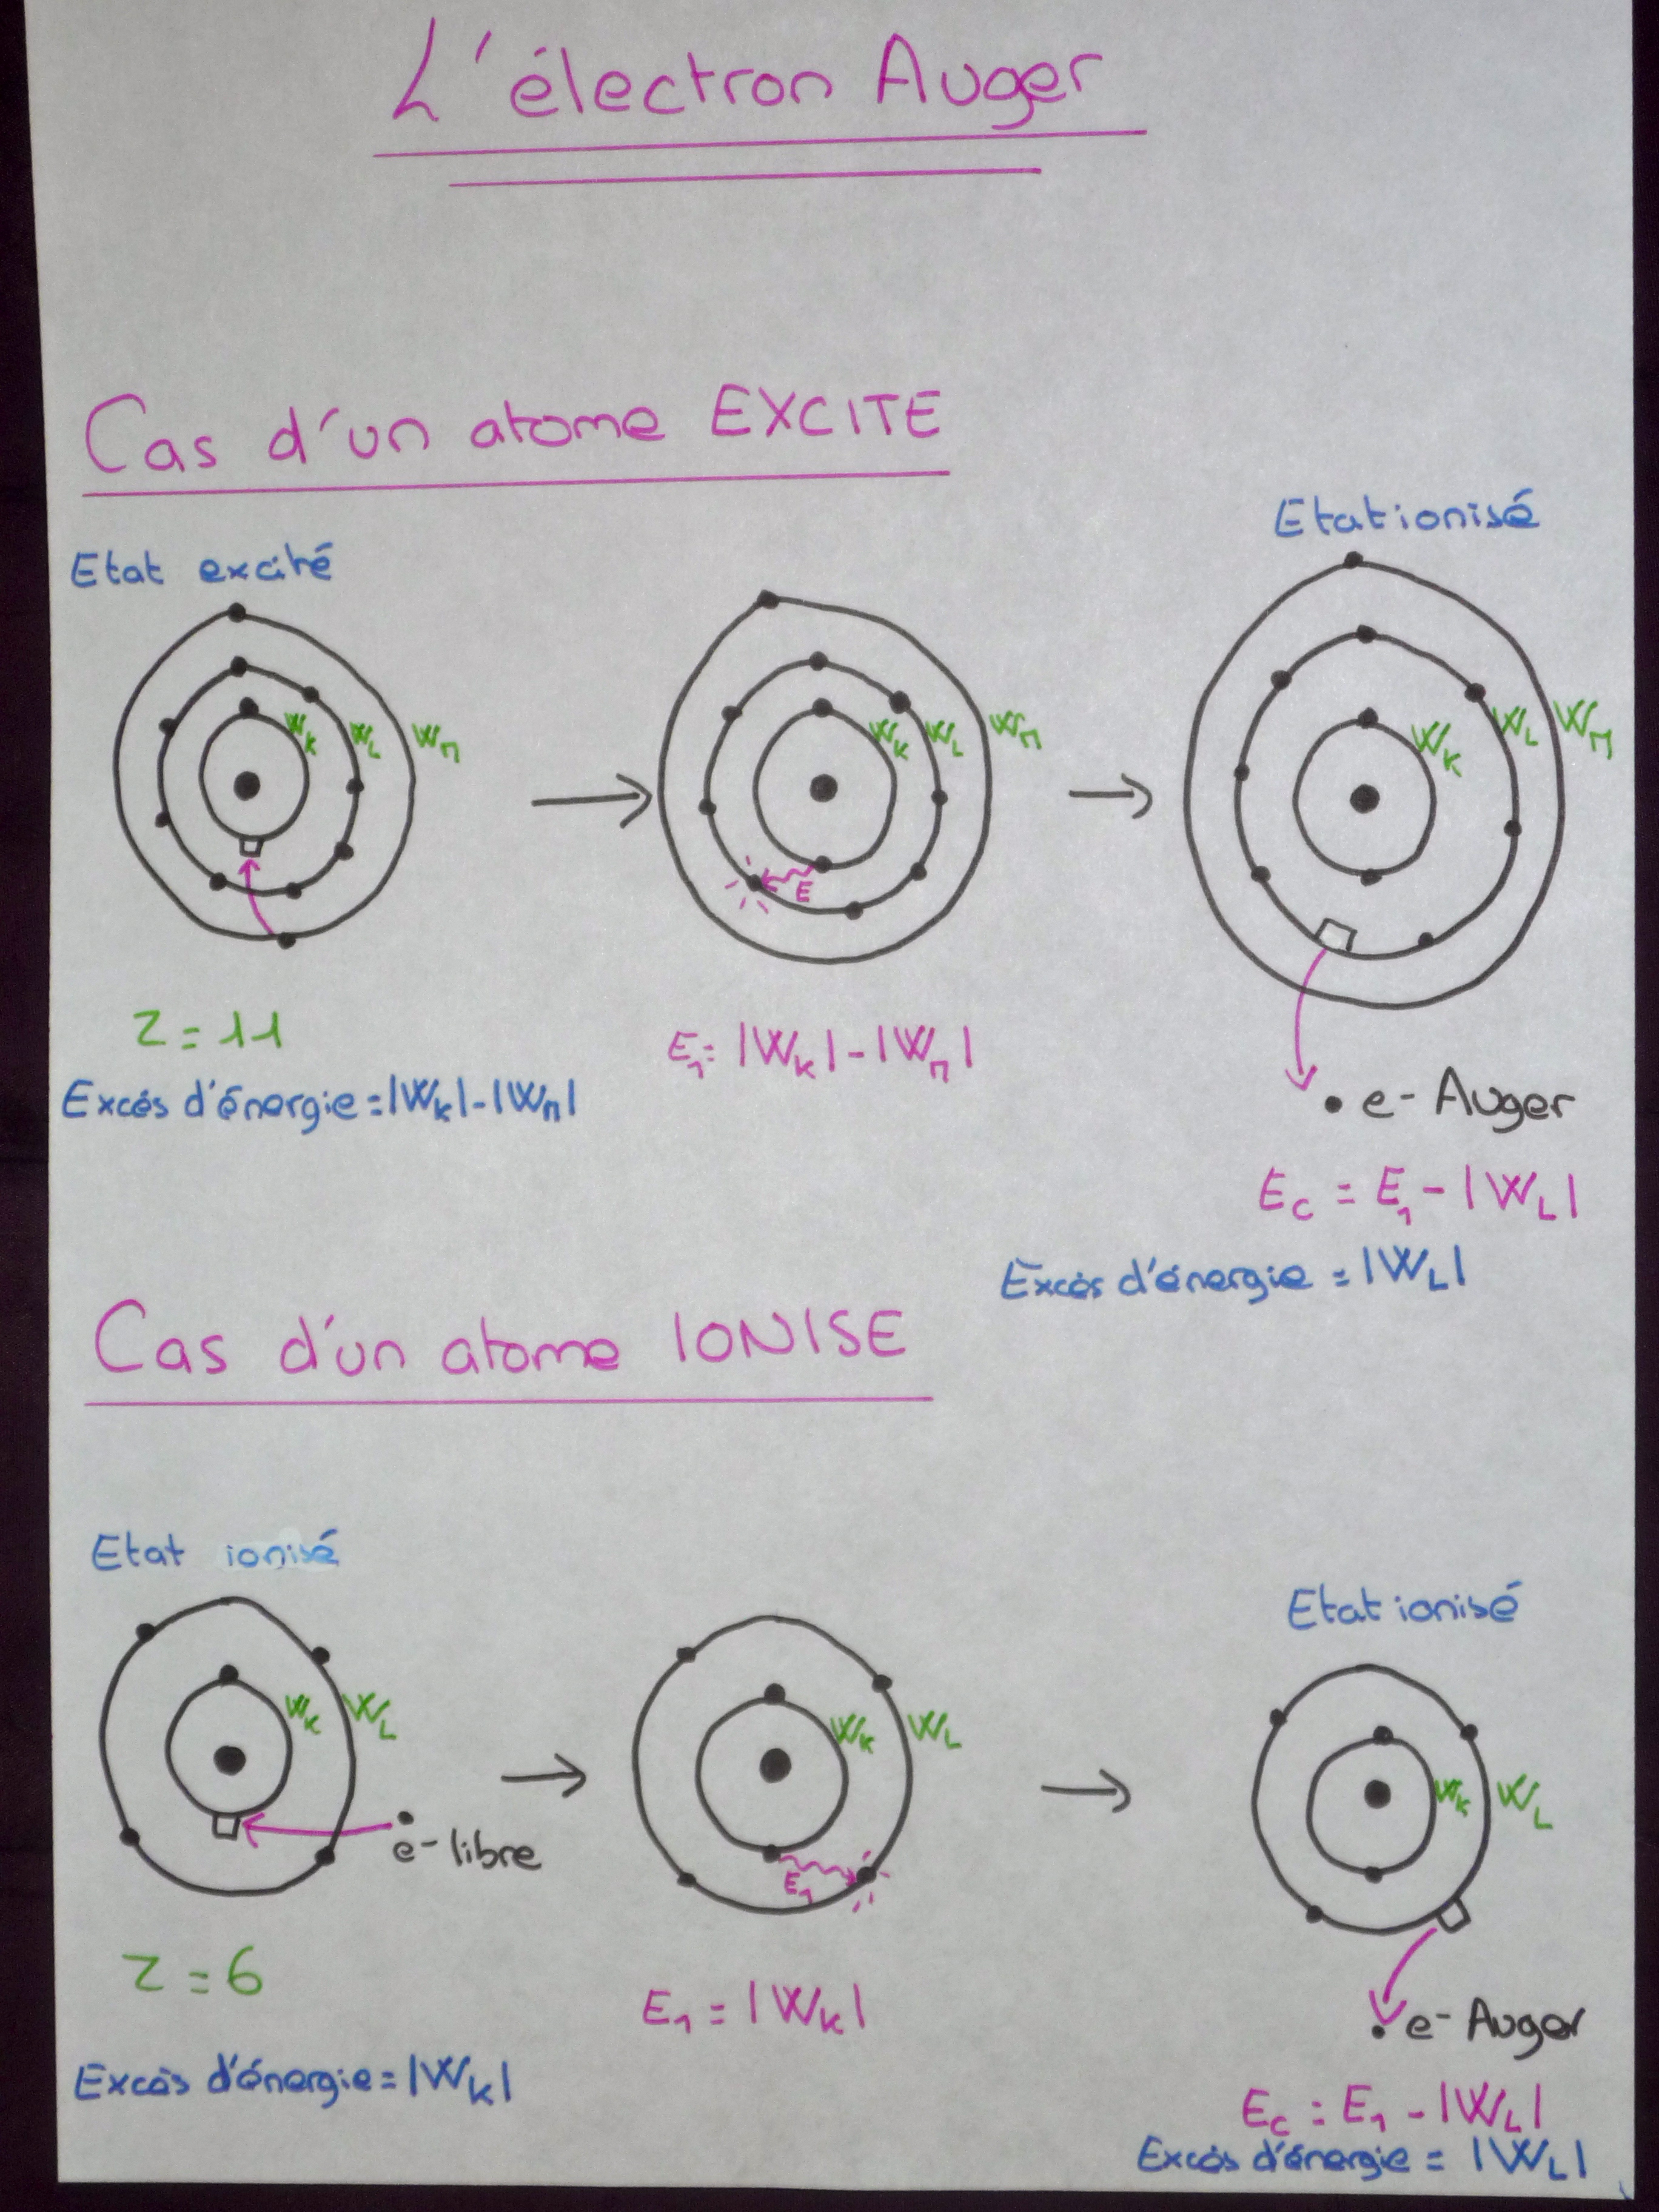 L'électron Auger
Cas d'un atome EXCITE
Etat excité
Etat ionisé
W_K W_L W_M
W_K W_L W_M
W_K W_L W_M
E
Z = 11
E_1 = |W_K| - |W_M|
Excés d'énergie = |W_K| - |W_M|
e- Auger
E_c = E_1 - |W_L|
Excès d'énergie = |W_L|
Cas d'un atome IONISE
Etat ionisé
Etat ionisé
W_K W_L
W_K W_L
W_K W_L
e- libre
E_1
Z = 6
E_1 = |W_K|
e- Auger
Excès d'énergie = |W_K|
E_c = E_1 - |W_L|
Excès d'énergie = |W_L|